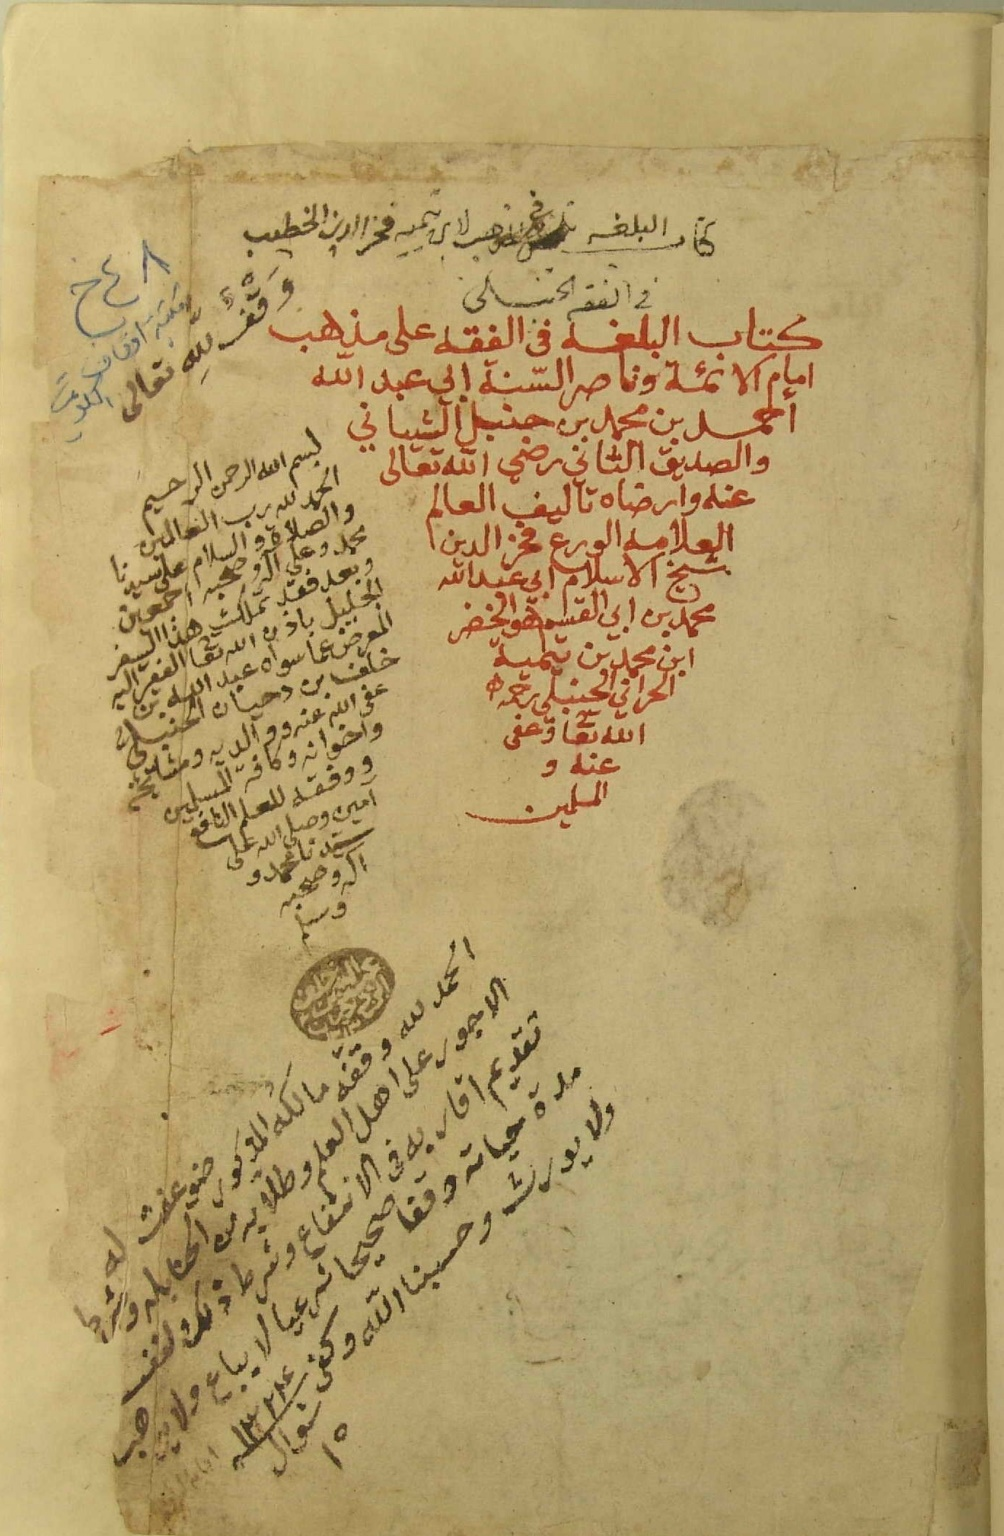 كتاب البلغة لابن تيميه فخر الدين الخطيب
في الفقه الحنبلي
وقف لله تعالى
٨ ٤ خ
مكتبة اوقاف الكويت
كتاب البلغة في الفقه على مذهب
امام الائمة وناصر السنة ابي عبد الله
أحمد بن محمد بن حنبل الشيباني
والصديق الثاني رضي الله تعالى
عنه وارضاه تأليف العالم
العلامه الورع فخر الدين
شيخ الاسلام ابي عبد الله
محمد بن ابي القسم هو الخضر
ابن محمد بن تيمية
الحراني الحنبلي رحمه
الله تعا وعفى
عنه و
المسلمين
بسم الله الرحمن الرحيم
الحمد لله رب العالمين
والصلاة والسلام على سيدنا
محمد وعلى اله وصحبه اجمعين
وبعد فقد تملكت هذا السفر
الجليل باذن الله تعا الفقير اليه
المعرض عما سواه عبد الله بن
خلف بن دحيان الحنبلي
عفى الله عنه ووالديه ومشايخه
واخوانه وكافة المسلمين
ووفقه للعلم النافع
آمين وصلى الله على
سيدنا محمد و
آله وصحبه
وسلم
الحمد لله وقفه مالكه المذكور ضوعفت له
الاجور على اهل العلم وطلابه من الحنابله وشرط
تقديم اقاربه في الانتفاع وشرط ذلك لنفسه
مدة حياته وقفا صحيحا شرعيا لا يباع ولا يوهب
ولا يورث وحسبنا الله وكفى
١٥ شوال